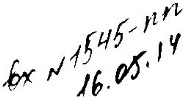 вх №1545-пп
16.05.14